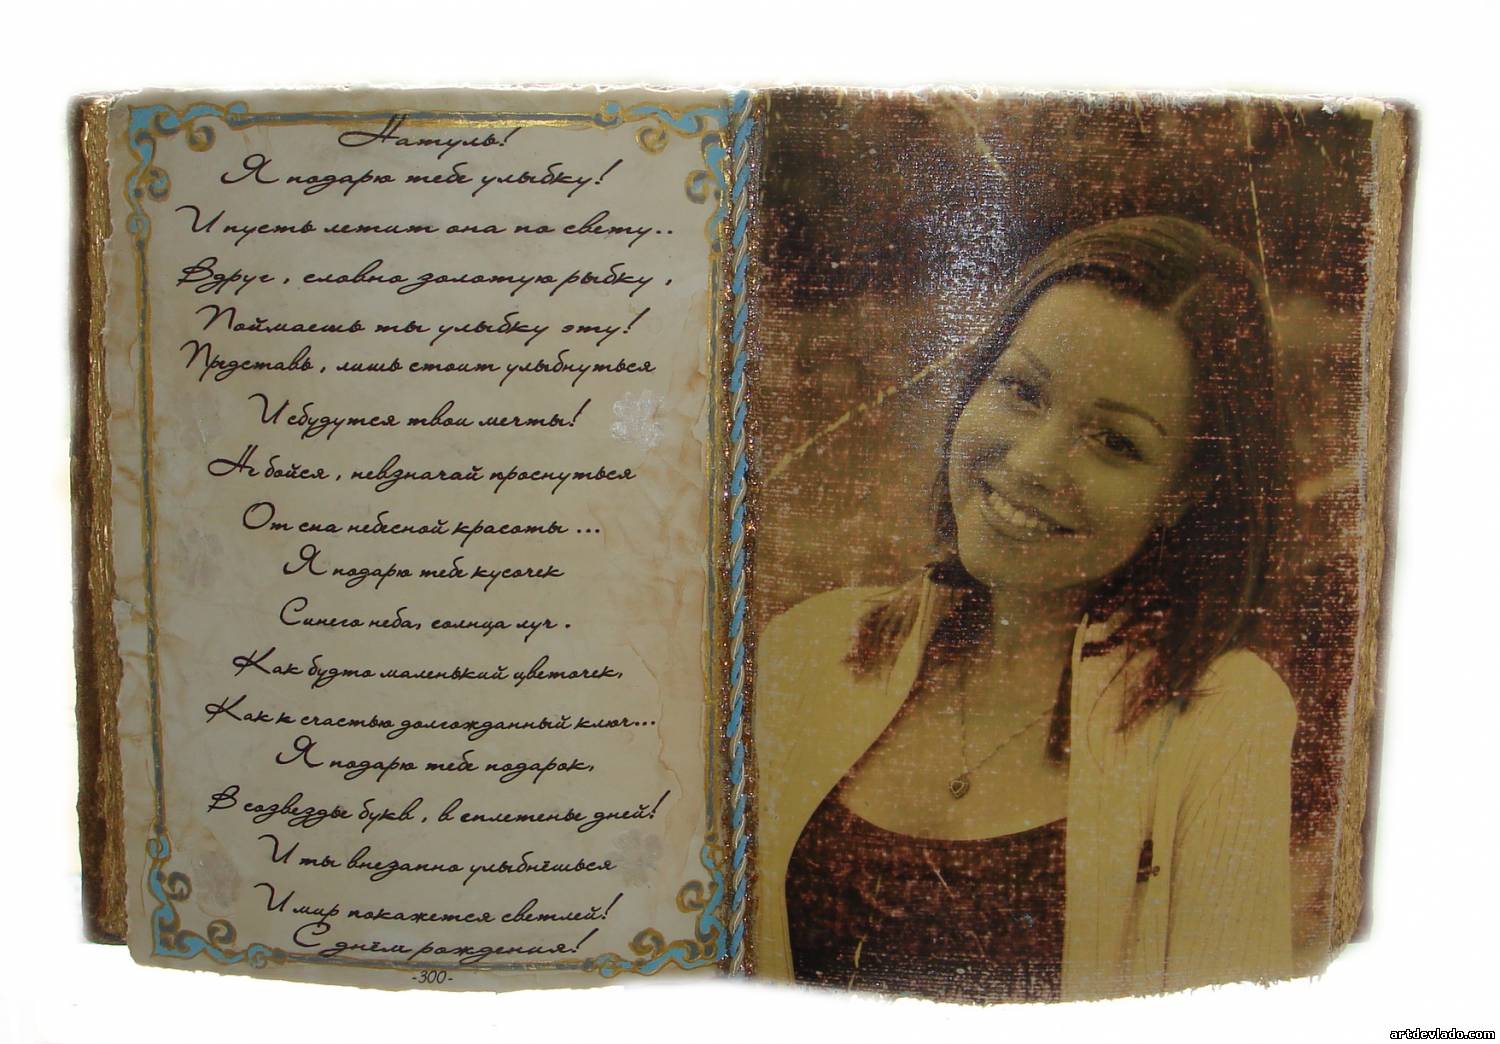 Натуль!
Я подарю тебе улыбку!
И пусть летит она по свету..
Вдруг, словно золотую рыбку,
Поймаешь ты улыбку эту!
Представь, лишь стоит улыбнуться
И сбудутся твои мечты!
Не бойся, невзначай проснуться
От сна небесной красоты...
Я подарю тебе кусочек
Синего неба, солнца луч.
Как будто маленький цветочек,
Как к счастью долгожданный ключ...
Я подарю тебе подарок,
В созвездье букв, в сплетенье дней!
И ты внезапно улыбнёшься
И мир покажется светлей!
С днём рождения!
-300-
artdevlado.com